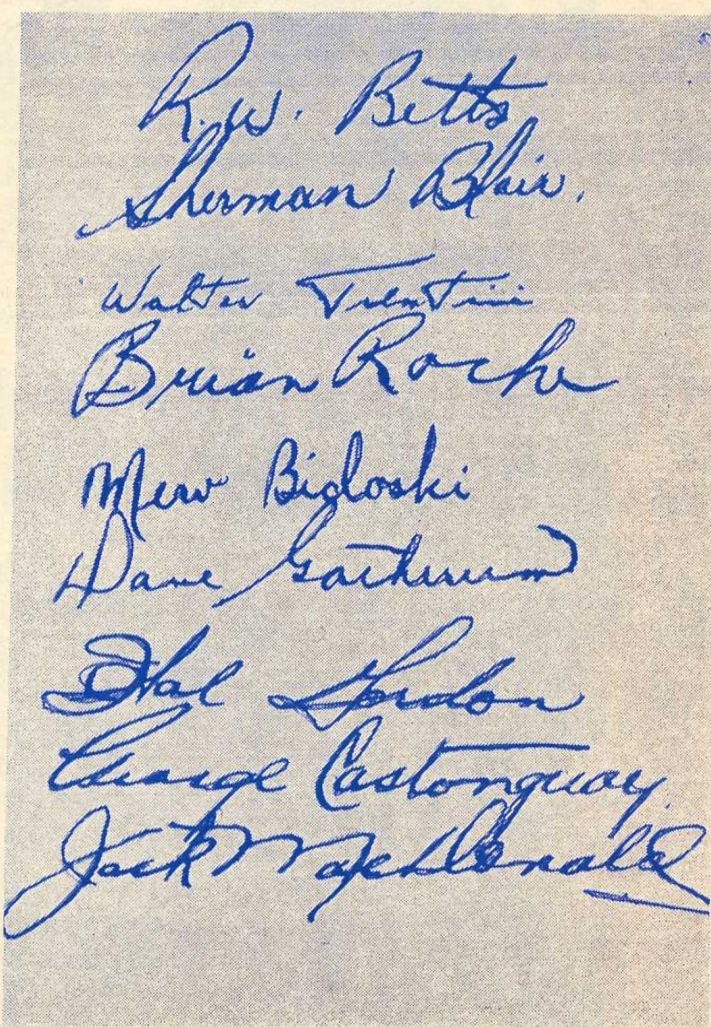 R.W. Betts
Sherman Blair.
Walter Trentini
Brian Roche
Merv Bidloski
Dave Gatherum
Hal Gordon
George Castonguay.
Jack MacDonald